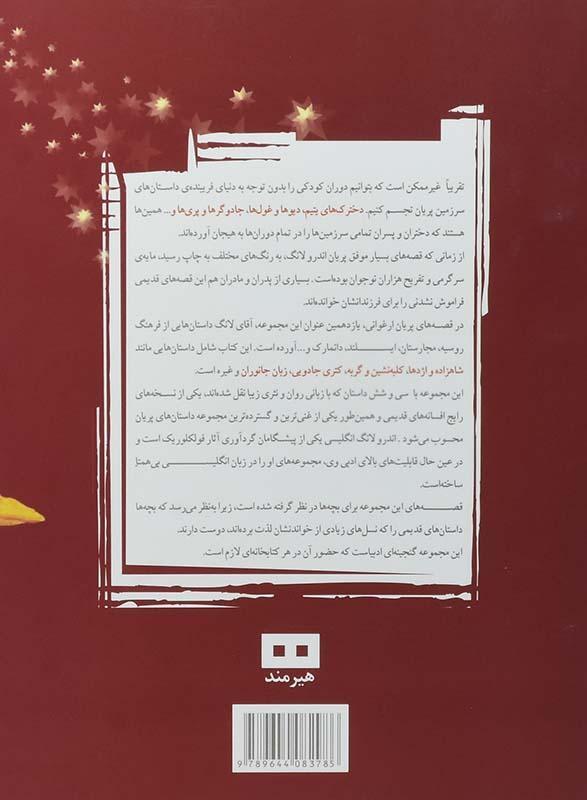 تقریباً غیرممکن است که بتوانیم دوران کودکی را بدون توجه به دنیای فریبنده‌ی داستان‌های
سرزمین پریان تجسم کنیم. دخترک‌های یتیم، دیوها و غول‌ها، جادوگرها و پری‌ها و... همین‌ها
هستند که دختران و پسران تمامی سرزمین‌ها را در تمام دوران‌ها به هیجان آورده‌اند.
از زمانی که قصه‌های بسیار موفق پریان اندرو لانگ، به رنگ‌های مختلف به چاپ رسید، مایه‌ی
سرگرمی و تفریح هزاران نوجوان بوده‌است. بسیاری از پدران و مادران هم این قصه‌های قدیمی
فراموش نشدنی را برای فرزندانشان خوانده‌اند.
در قصه‌های پریان ارغوانی، یازدهمین عنوان این مجموعه، آقای لانگ داستان‌هایی از فرهنگ
روسیه، مجارستان، ایسلند، دانمارک و...آورده است. این کتاب شامل داستان‌هایی مانند
شاهزاده و اژدها، کلبه‌نشین و گربه، کتری جادویی، زبان جانوران و غیره است.
این مجموعه با سی و شش داستان که با زبانی روان و نثری زیبا نقل شده‌اند، یکی از نسخه‌های
رایج افسانه‌های قدیمی و همین‌طور یکی از غنی‌ترین و گسترده‌ترین مجموعه داستان‌های پریان
محسوب می‌شود . اندرو لانگ انگلیسی یکی از پیشگامان گردآوری آثار فولکلوریک است و
در عین حال قابلیت‌های بالای ادبی وی، مجموعه‌های او را در زبان انگلیسی بی‌همتا
ساخته‌است.
قصه‌های این مجموعه برای بچه‌ها در نظر گرفته شده است، زیرا به‌نظر می‌رسد که بچه‌ها
داستان‌های قدیمی را که نسل‌های زیادی از خواندنشان لذت برده‌اند، دوست دارند.
این مجموعه گنجینه‌ای ادبیاست که حضور آن در هر کتابخانه‌ای لازم است.
هیرمند
9 789644 083785